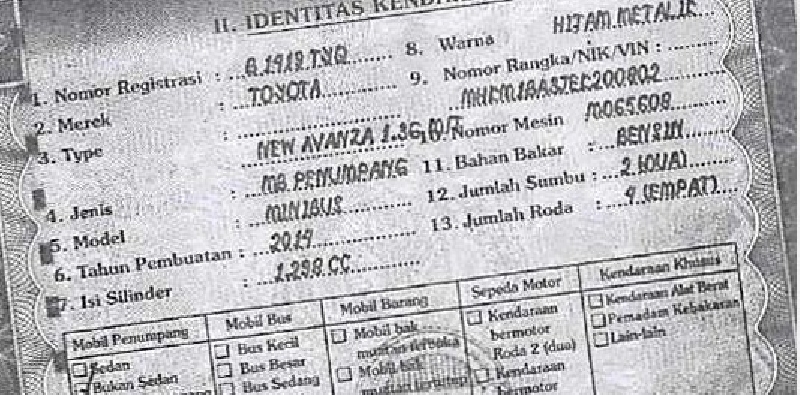 II. IDENTITAS
1. Nomor Registrasi :
8. Warna HITAM METALIK
2. Merek : TOYOTA
9. Nomor Rangka/NIK/VIN :
3. Type : NEW AVANZA
Nomor Mesin
4. Jenis : MB. PENUMPANG
11. Bahan Bakar : BENSIN
5. Model : MINIBUS
12. Jumlah Sumbu : 2 (DUA)
6. Tahun Pembuatan :
13. Jumlah Roda : 4 (EMPAT)
7. Isi Silinder : 1.298 CC
Mobil Penumpang
Mobil Bus
Mobil Barang
Sepeda Motor
Kendaraan Khusus
Sedan
Bukan Sedan
Bus Kecil
Bus Besar
Bus Sedang
Mobil bak
muatan terbuka
Mobil bak
muatan tertutup
Kendaraan
bermotor
Roda 2 (dua)
Kendaraan
bermotor
Kendaraan Alat Berat
Pemadam Kebakaran
Lain-lain